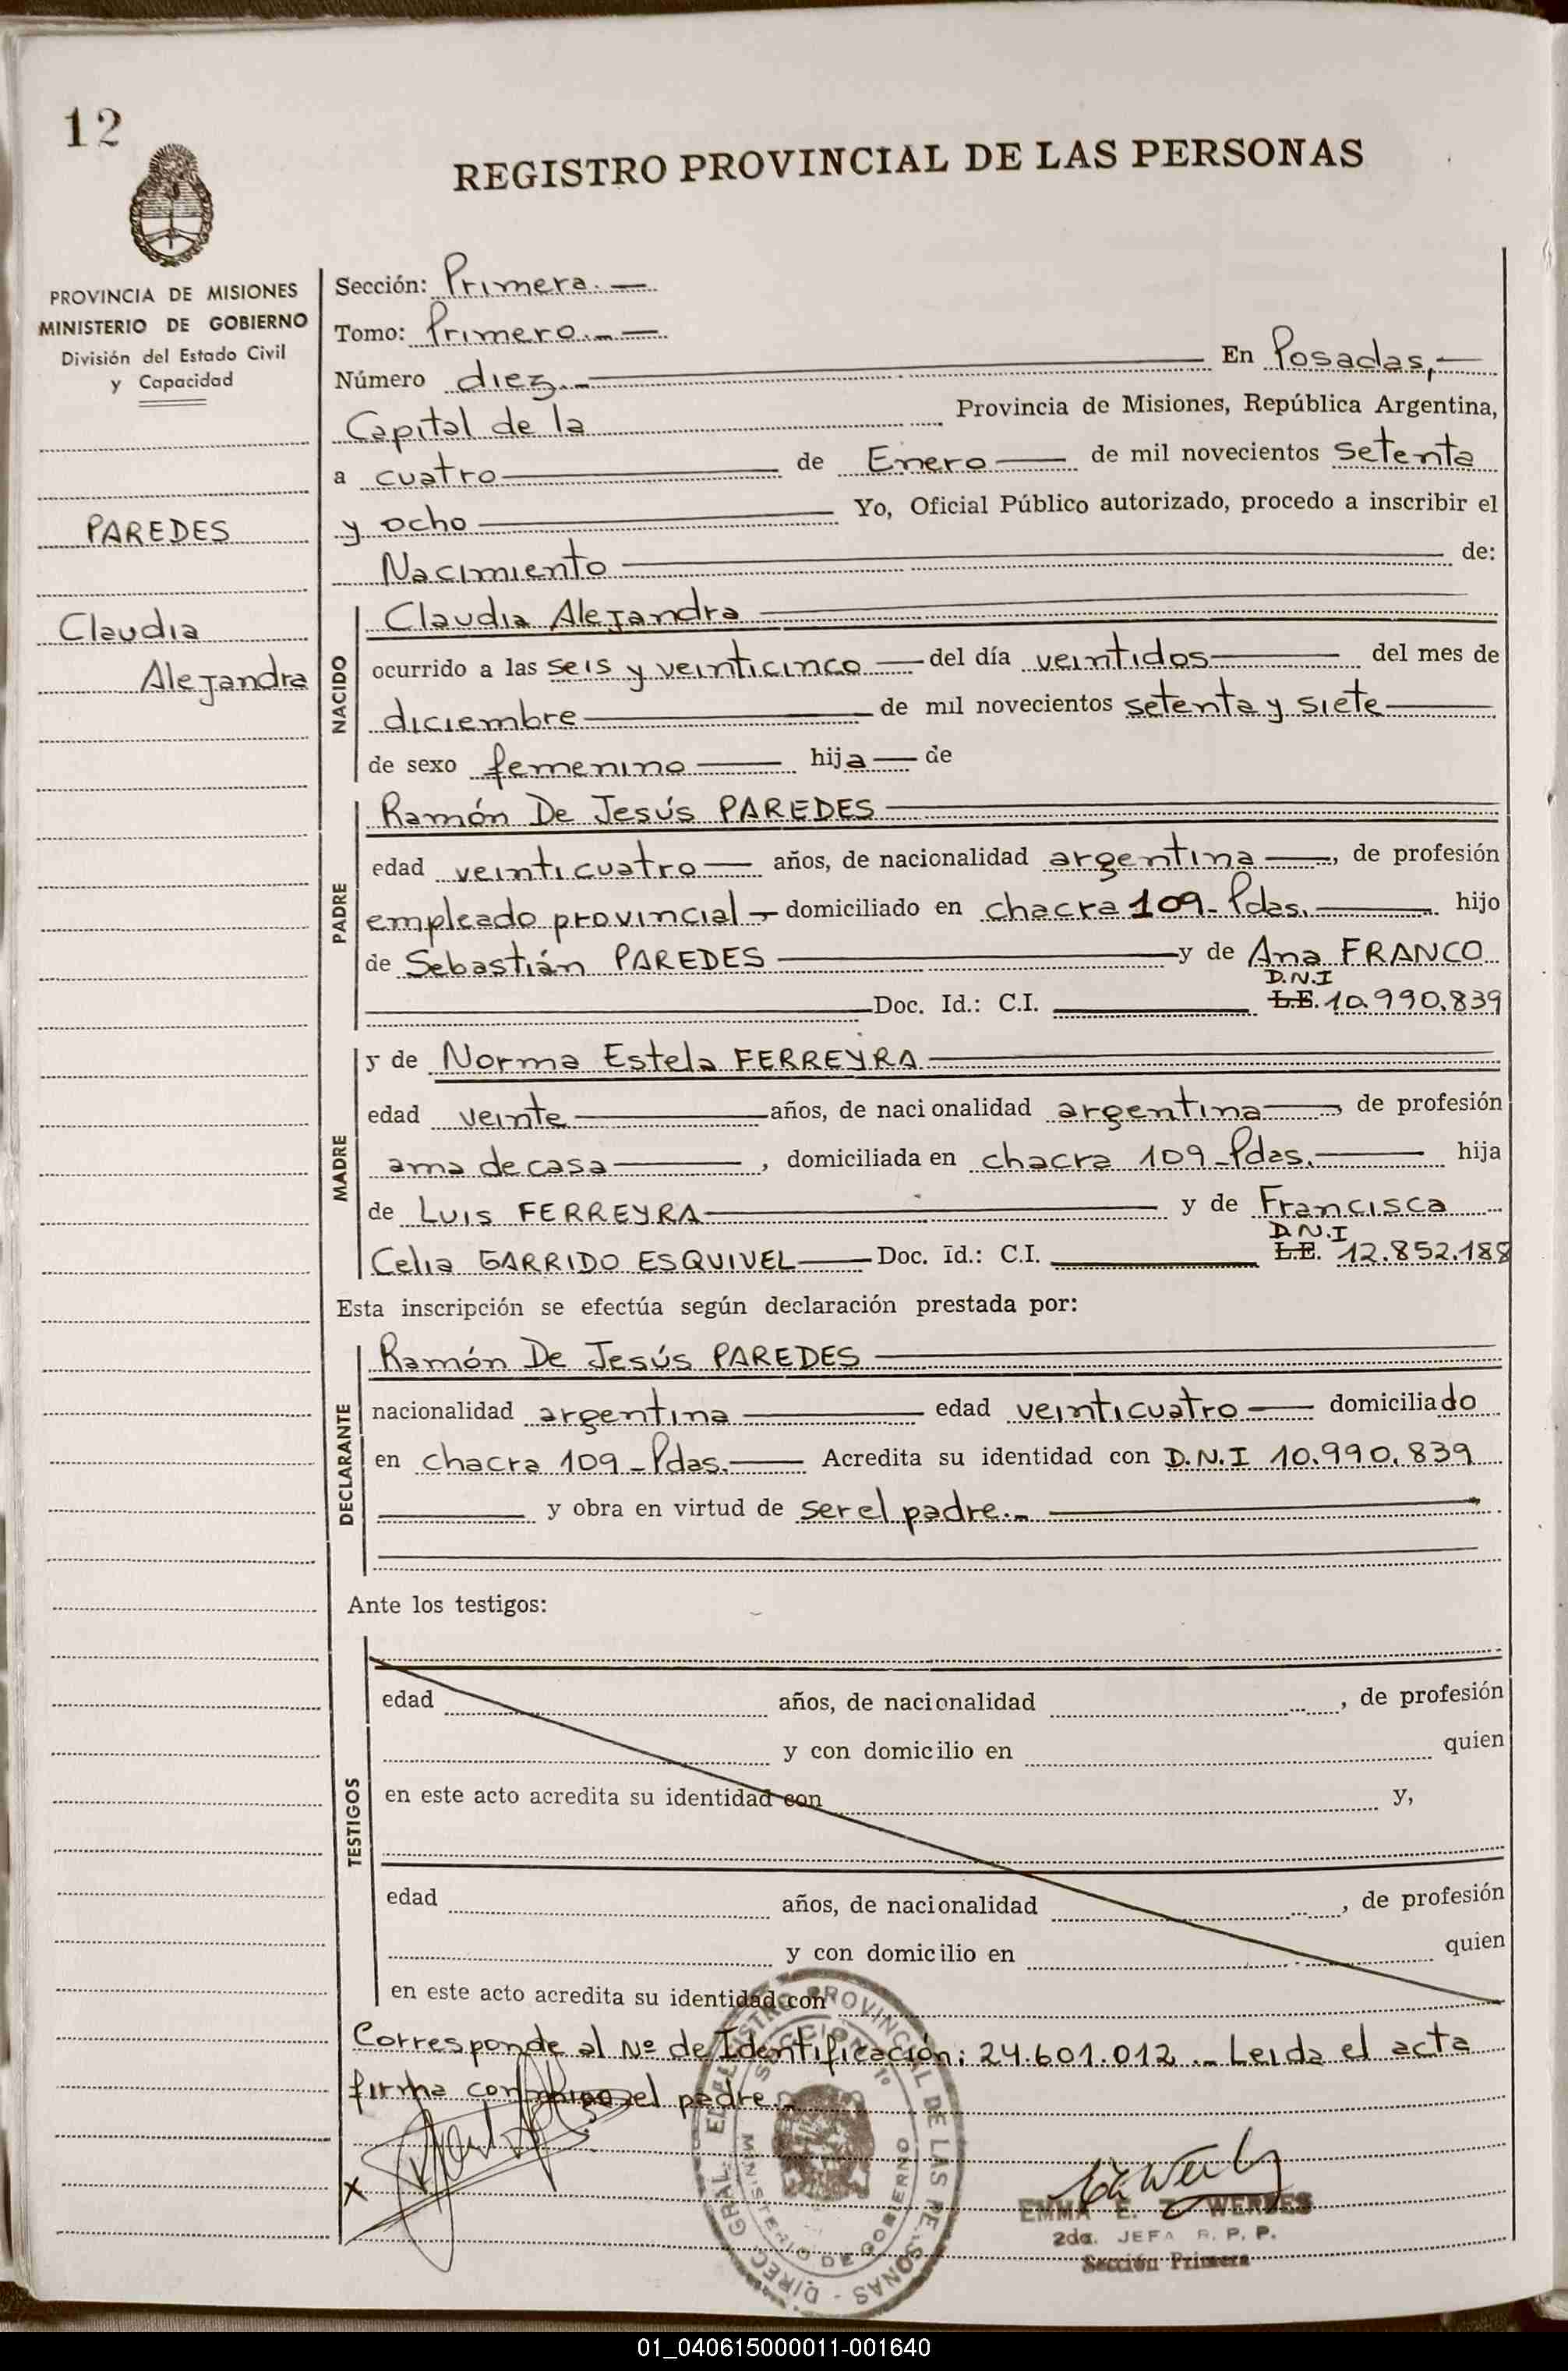 12
REGISTRO PROVINCIAL DE LAS PERSONAS
PROVINCIA DE MISIONES
MINISTERIO DE GOBIERNO
División del Estado Civil
y Capacidad
PAREDES
Claudia
Alejandra
Sección: Primera.
Tomo: Primero.
Número diez. En Posadas,
Capital de la Provincia de Misiones, República Argentina,
a cuatro de Enero de mil novecientos setenta
y ocho Yo, Oficial Público autorizado, procedo a inscribir el
Nacimiento de:
NACIDO
Claudia Alejandra
ocurrido a las seis y veinticinco del día veintidos del mes de
diciembre de mil novecientos setenta y siete
de sexo femenino hija de
PADRE
Ramón De Jesús PAREDES
edad veinticuatro años, de nacionalidad argentina, de profesión
empleado provincial domiciliado en chacra 109_Pdas. hijo
de Sebastián PAREDES y de Ana FRANCO
D.N.I
Doc. Id.: C.I. L.E. 10.990.839
MADRE
y de Norma Estela FERREYRA
edad veinte años, de nacionalidad argentina, de profesión
ama de casa, domiciliada en chacra 109_Pdas. hija
de Luis FERREYRA y de Francisca
D.N.I
Celia GARRIDO ESQUIVEL Doc. Id.: C.I. L.E. 12.852.188
Esta inscripción se efectúa según declaración prestada por:
DECLARANTE
Ramón De Jesús PAREDES
nacionalidad argentina edad veinticuatro domiciliado
en chacra 109_Pdas. Acredita su identidad con D.N.I 10.990.839
y obra en virtud de ser el padre.
Ante los testigos:
TESTIGOS
edad años, de nacionalidad , de profesión
y con domicilio en quien
en este acto acredita su identidad con y,
edad años, de nacionalidad , de profesión
y con domicilio en quien
en este acto acredita su identidad con
Corresponde al Nº de Identificación: 24.601.012 Leida el acta
firma conmigo el padre.
X
REGISTRO PROVINCIAL DE LAS PERSONAS - DIREC. GRAL.
SECCION 1º
MINISTERIO DE GOBIERNO
EMMA E. Z. WERBES
2da. JEFA R. P. P.
Sección Primera
01_040615000011-001640